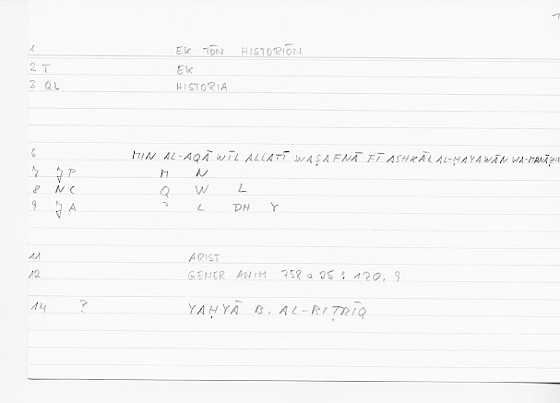 1 EK TŌN HISTORIŌN
2 T EK
3 QL HISTORIA
6 MIN AL-AQĀWĪL ALLATĪ WAṢAFNĀ FĪ ASHKĀL AL-ḤAYAWĀN
P M N
8 NC Q W L
9 A ʾ L DH Y
11 ARIST
12 GENER ANIM 758 a 25 : 120, 9
14 ? YAḤYĀ B. AL-BIṬRĪQ